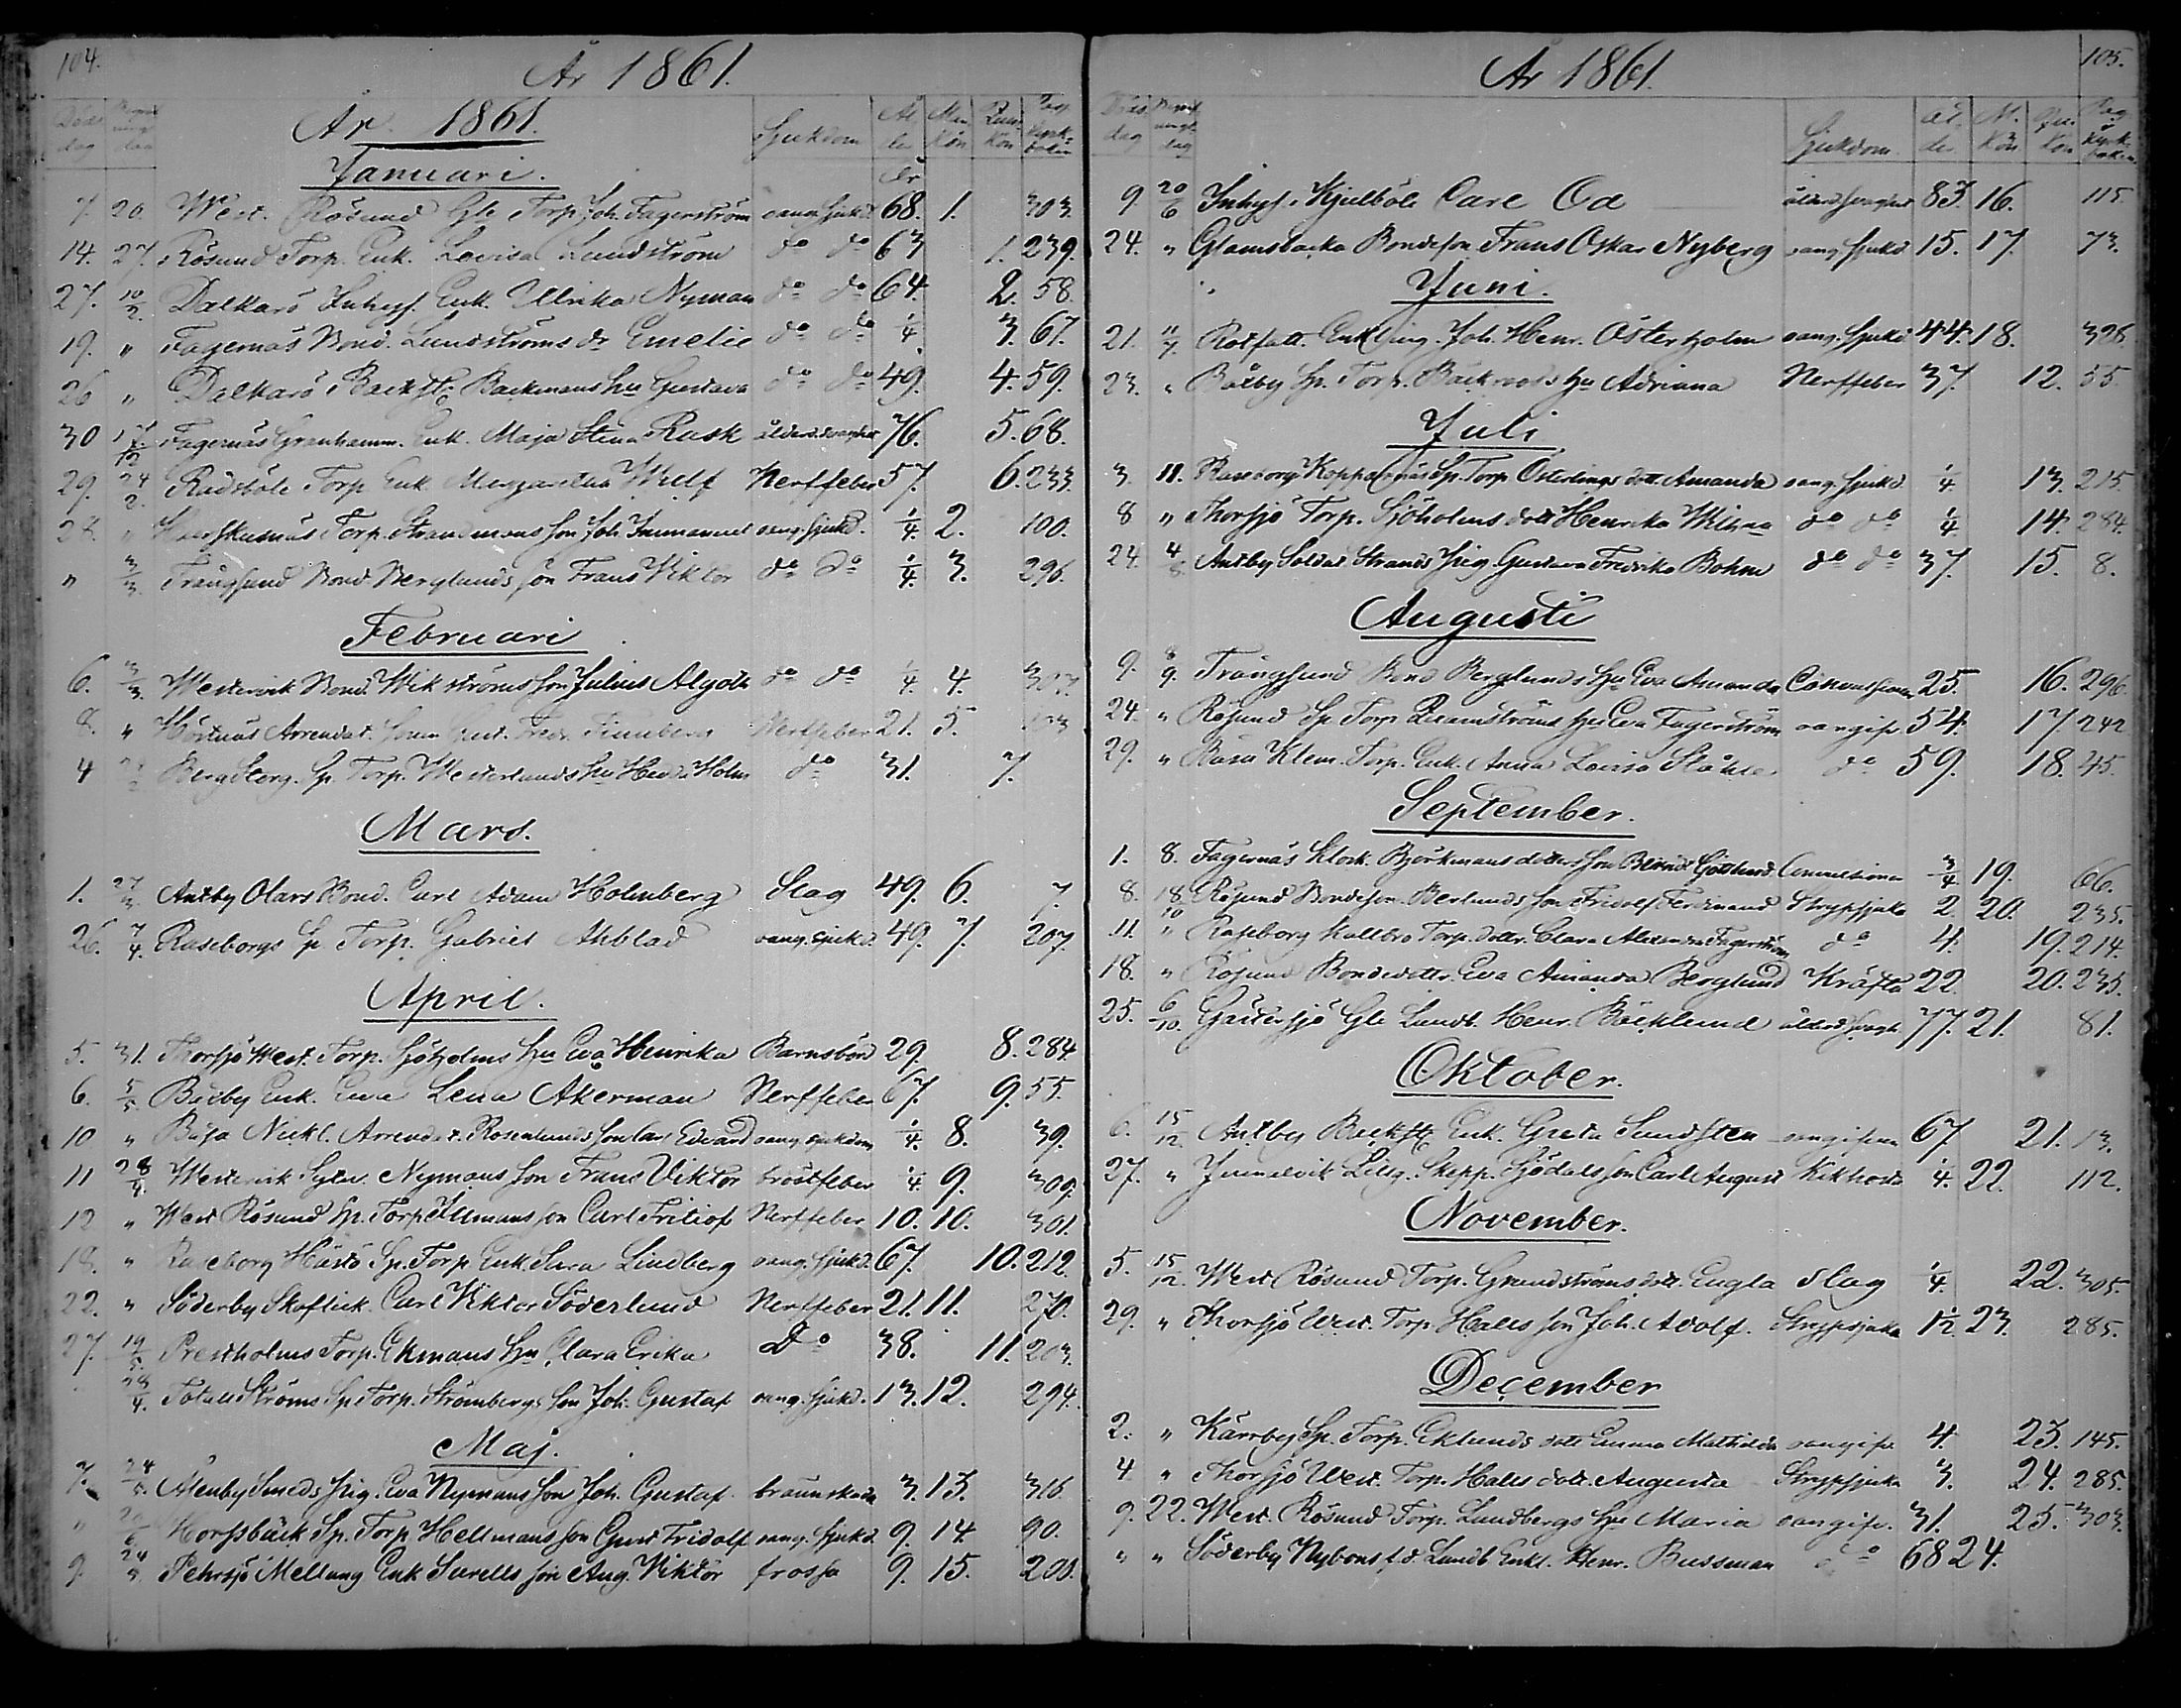 104.
År 1861.
Döds dag
Begrafnings dag
År 1861.
Sjukdom
Ål der
Man Kön
Quin Kön
Pag Kyrkboken
Januari.
År
7. 20. West. Rösund Gle Torp. Joh. Fagerström oang. sjukd. 68. 1. 303.
14. 27. Rösund Torp. Enk. Lovisa Lundström do do 63 1. 239.
27. 10/2. Dalkarö Inhys. Enk. Ullrika Nyman do do 64. 2. 58.
19. " Fagernäs Bond. Lundströms dr Emelie do do 1/4 3. 67.
26 " Dalkarö Backst. Backmans Hu Gustava do do 49. 4. 59.
30 17/12 Fagernäs Grenhamm. Enk. Maja Stina Rask ålderd.svaghet 76. 5. 68.
29. 24/2. Rådsböle Torp. Enk. Margareta Wulf Nerffeber 57. 6. 233.
28. " Torp. Strandmans son Joh. Immanuel oang. sjukd. 1/4. 2. 100.
" 3/3. Trångsund Bond. Berglunds son Frans Viktor do do 1/4. 3. 296.
Februari
6. 3/3. Westervik Bond. Wikströms son Julius Algoth do do 1/4. 4. 307.
8. " Hörtnäs Arrendat. Sonen Gust. Fredr. Finnberg Nerffeber 21. 5.
4 Berg Storg. Sp. Torp. Westerlunds Hu Hedd. Holm do 31. 7.
Mars.
1. 27/3. Antby Olars Bond. Carl Adam Holmberg Slag 49. 6. 7.
26. 7/4. Raseborgs Sp Torp. Gabriel Ahlblad oang. sjukd. 49. 7. 207.
April.
5. 31. Thorsjö West. Torp. Sjöholms Hu Eva Henrika Barnsbörd 29. 8. 284.
6. 5/5. Båtby Enk. Eva Lena Åkerman Nerffeber 67. 9. 55.
10 " Båsa Nickl. Arrendat. Rosenlunds son Carl Edvard oang. sjukdom 1/4. 8. 39.
11 28/4. Westervik Sytn. Nymans son Frans Viktor bröstfeber 1/4. 9. 309.
12 " West Rösund Sp. Torp. Illmans son Carl Fritiof Nerffeber 10. 10. 301.
18. " Raseborg Hästö Sp. Torp. Enk. Sara Lindberg oang. sjukd. 67. 10. 212.
22. " Söderby Skoflick. Carl Viktor Söderlund Nerffeber 21. 11. 270.
27. 19/5. Prestholms Torp. Ekmans Hu Clara Erika Do 38. 11. 203.
28/4. Totals Ströms Sp Torp. Strömbergs son Joh. Gustaf oang. sjukd. 13. 12. 294.
Maj.
7. 24/5. Ålenby Smeds Pig. Eva Nymans son Joh. Gustaf brännskada 3. 13. 316.
" 20/6 Horsbäck Sp. Torp. Hellmans son Gust Fridolf oang. sjukd. 9. 14. 90.
9. 24/5 Pehrsjö Mellang Enk Surells son Aug. Viktor frossa 9. 15. 200.
År 1861.
105.
Döds dag
Begrafnings dag
Sjukdom.
Ål der.
M. Kön
Qu. Kön
Pag Kyrkboken
9. 20/6 Inhys. Kjelböle Carl Od ålderd.svaghet 83. 16. 115.
24. " Glamsbacka Bondeson Frans Oskar Nyberg oang. sjukd. 15. 17. 73.
Juni.
21. 11/7. Rotfatt. Enkling. Joh. Henr. Österholm oang. sjukd. 44. 18. 328.
23. " Båtby Sp. Torp. Backroos's Hu Adriana Nerffeber 37. 12. 55.
Juli
3. 11. Raseborg Kopparnäs Sp. Torp Österlings dott. Amanda oang. sjukd. 1/4. 13. 215.
8 " Thorsjö Torp. Sjöholms dott Henrika Wilhna do do 1/4 14. 284.
24. 4/8. Antby Soldat Strands Pig. Gustava Fredrika Bohm do do 37. 15. 8.
Augusti
9. 8/9. Trångsund Bond Berglunds Hu Eva Amanda Convulsioner 25. 16. 296.
24. " Rösund Sp Torp Hu Eva Fagerström oangifv 54. 17. 242.
29. " Båsa Klem. Torp. Enk. Anna Lovisa Ståhle do 59. 18. 45.
September.
1. 8. Fagernäs Klock. Björkmans dotters son Bernd. Gotthard Convulsioner 3/4 19. 66.
8. 18/10 Rösund Bondeson. Berlunds son Fridolf Ferdinand Strypsjuka 2. 20. 235.
11. " Raseborg Kallbro Torp. dottr. Clara Alexandra Fagerström do 4. 19. 214.
18. " Rösund Bondedottr. Eva Amanda Berglund Kräfta 22. 20. 235.
25. 6/10. Gättersjö Gle Landb. Henr. Bäcklund ålderd.svagh. 77. 21. 81.
Oktober.
6. 15/12. Antby Backst Enk. Greta Sundsten oangifven 67 21. 13.
27. " Jummelvik Lillg. Skepp. Sjödals son Carl August Kikhosta 1/4. 22. 112.
November.
5. 15/12. West Rösund Torp. Grundströms dott. Engla Slag 1/4. 22. 305.
29. " Thorsjö West. Torp Halls son Joh. Adolf. Strypsjuka 1/2 23. 285.
December
2. " Kärrby Sp. Torp. Eklunds dott Emma Mathilda oangifv 4. 23. 145.
4 " Thorsjö West. Torp. Halls dott. Augusta Strypsjuka 3. 24. 285.
9. 22. West. Rösund Torp. Lundbergs Hu Maria oangifv. 31. 25. 303.
" " Söderby Nybons f.d. Landb Enkl. Henr. Bussman do 68 24.